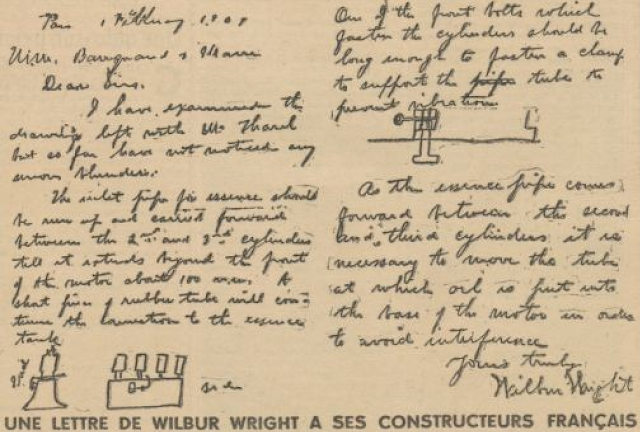 Pau 1 February 1909
Mm. Bariquand & Marre
Dear Sirs.
I have examined the
drawing left with Mr Tharel
but so far have not noticed any
serious blunders.
The inlet pipe for essence should
be run up and carried forward
between the 2nd and 3rd cylinders
till it extends beyond the front
of the motor about 100 m.m. A
short piece of rubber tube will con-
tinue the connection to the essence
tank
One of the front bolts which
fasten the cylinders should be
long enough to fasten a clamp
to support the pipe tube to
prevent vibration
As the essence pipe comes
forward between the second
and third cylinders it is
necessary to move the tube
at which oil is put into
the base of the motor in order
to avoid interference
Yours truly
Wilbur Wright
UNE LETTRE DE WILBUR WRIGHT A SES CONSTRUCTEURS FRANÇAIS